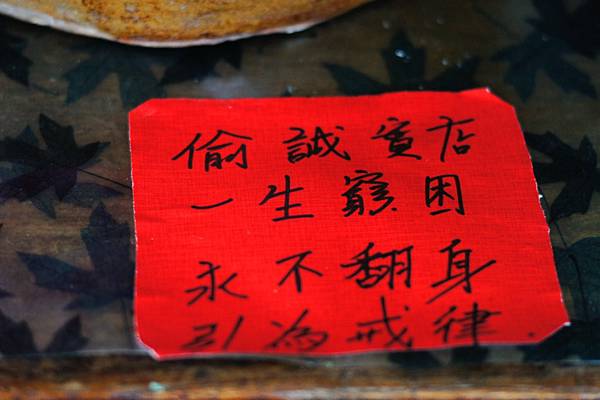 偷誠實店
一生窮困
永不翻身
引為戒律.